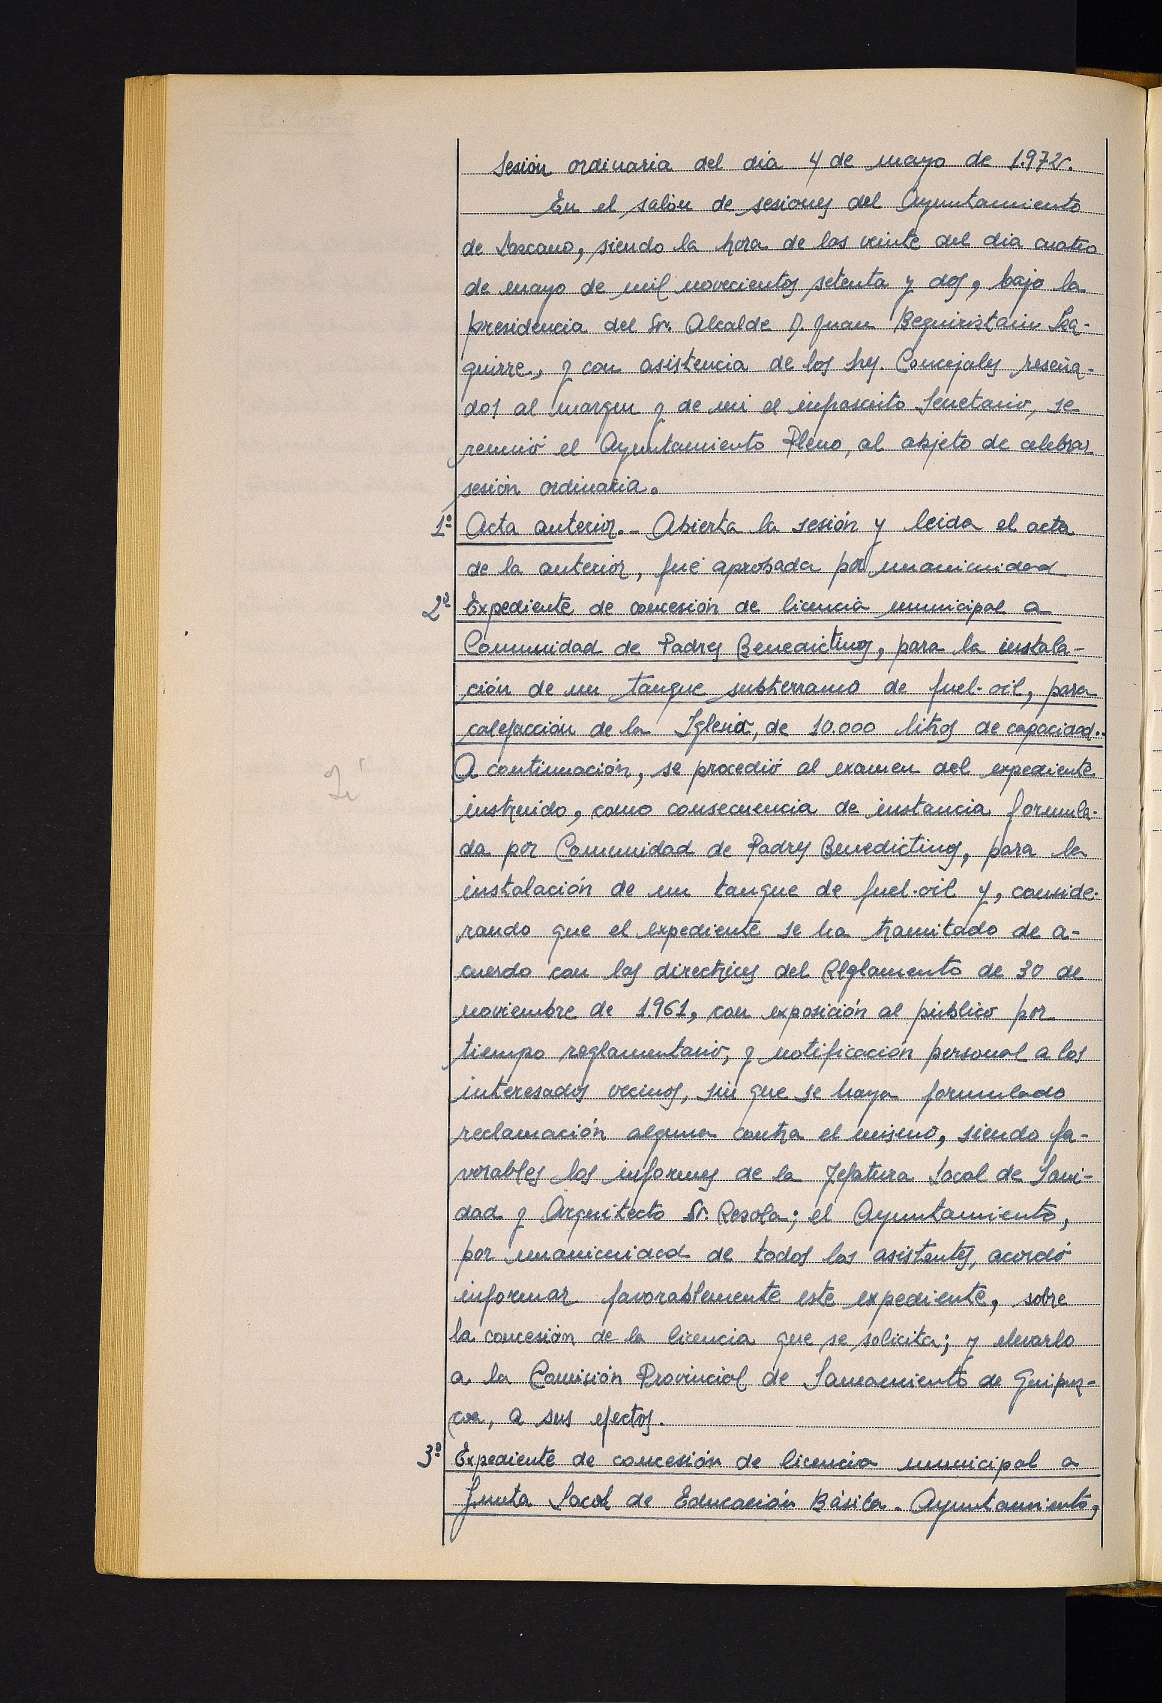 Sesión ordinaria del día 4 de mayo de 1.972.
En el salón de sesiones del Ayuntamiento
de Lazcano, siendo la hora de las veinte del dia cuatro
de mayo de mil novecientos setenta y dos, bajo la
presidencia del Sr. Alcalde D. Juan Beguiristain Iza-
guirre, y con asistencia de los Srs. Concejales reseña-
dos al margen y de mi el infrascrito Secretario, se
reunió el Ayuntamiento Pleno, al objeto de celebrar
sesión ordinaria.
1º Acta anterior.- Abierta la sesión y leida el acta
de la anterior, fué aprobada por unanimidad
2º Expediente de concesión de licencia municipal a
Comunidad de Padres Benedictinos, para la instala-
ción de un tanque subterraneo de fuel-oil, para
calefacción de la Iglesia, de 10.000 litros de capacidad.
A continuación, se procedió al examen del expediente
instruido, como consecuencia de instancia formula-
da por Comunidad de Padres Benedictinos, para la
instalación de un tanque de fuel-oil y, conside-
rando que el expediente se ha tramitado de a-
cuerdo con las directrices del Reglamento de 30 de
noviembre de 1.961, con exposición al público por
tiempo reglamentario, y notificación personal a los
interesados vecinos, sin que se haya formulado
reclamación alguna contra el mismo, siendo fa-
vorables los informes de la Jefatura Local de Sani-
dad y Arquitecto Sr. Resola; el Ayuntamiento,
por unanimidad de todos los asistentes, acordó
informar favorablemente este expediente, sobre
la concesión de la licencia que se solicita; y elevarlo
a la Comisión Provincial de Saneamiento de Guipuz-
coa, a sus efectos.
3º Expediente de concesión de licencia municipal a
Junta Local de Educación Básica. Ayuntamiento,